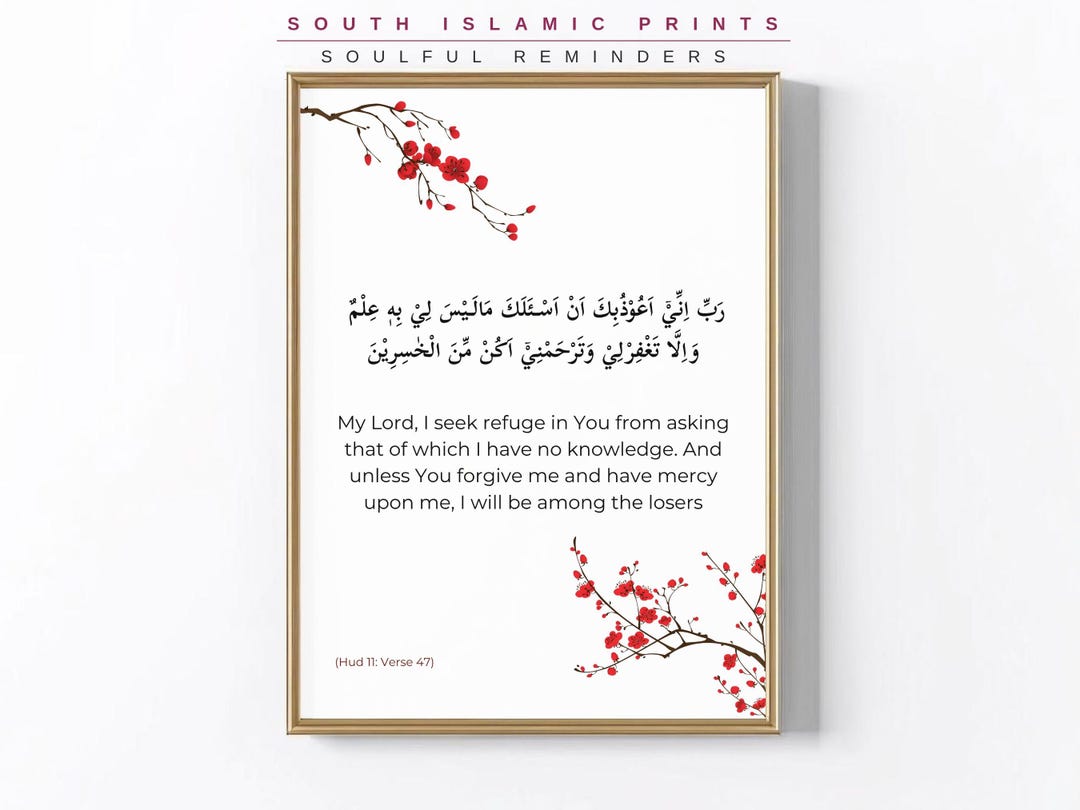 SOUTH ISLAMIC PRINTS
SOULFUL REMINDERS
رَبِّ اِنِّيْٓ اَعُوْذُبِكَ اَنْ اَسْـَٔلَكَ مَالَيْسَ لِيْ بِهٖ عِلْمٌ
وَاِلَّا تَغْفِرْلِيْ وَتَرْحَمْنِيْٓ اَكُنْ مِّنَ الْخٰسِرِيْنَ
My Lord, I seek refuge in You from asking
that of which I have no knowledge. And
unless You forgive me and have mercy
upon me, I will be among the losers
(Hud 11: Verse 47)